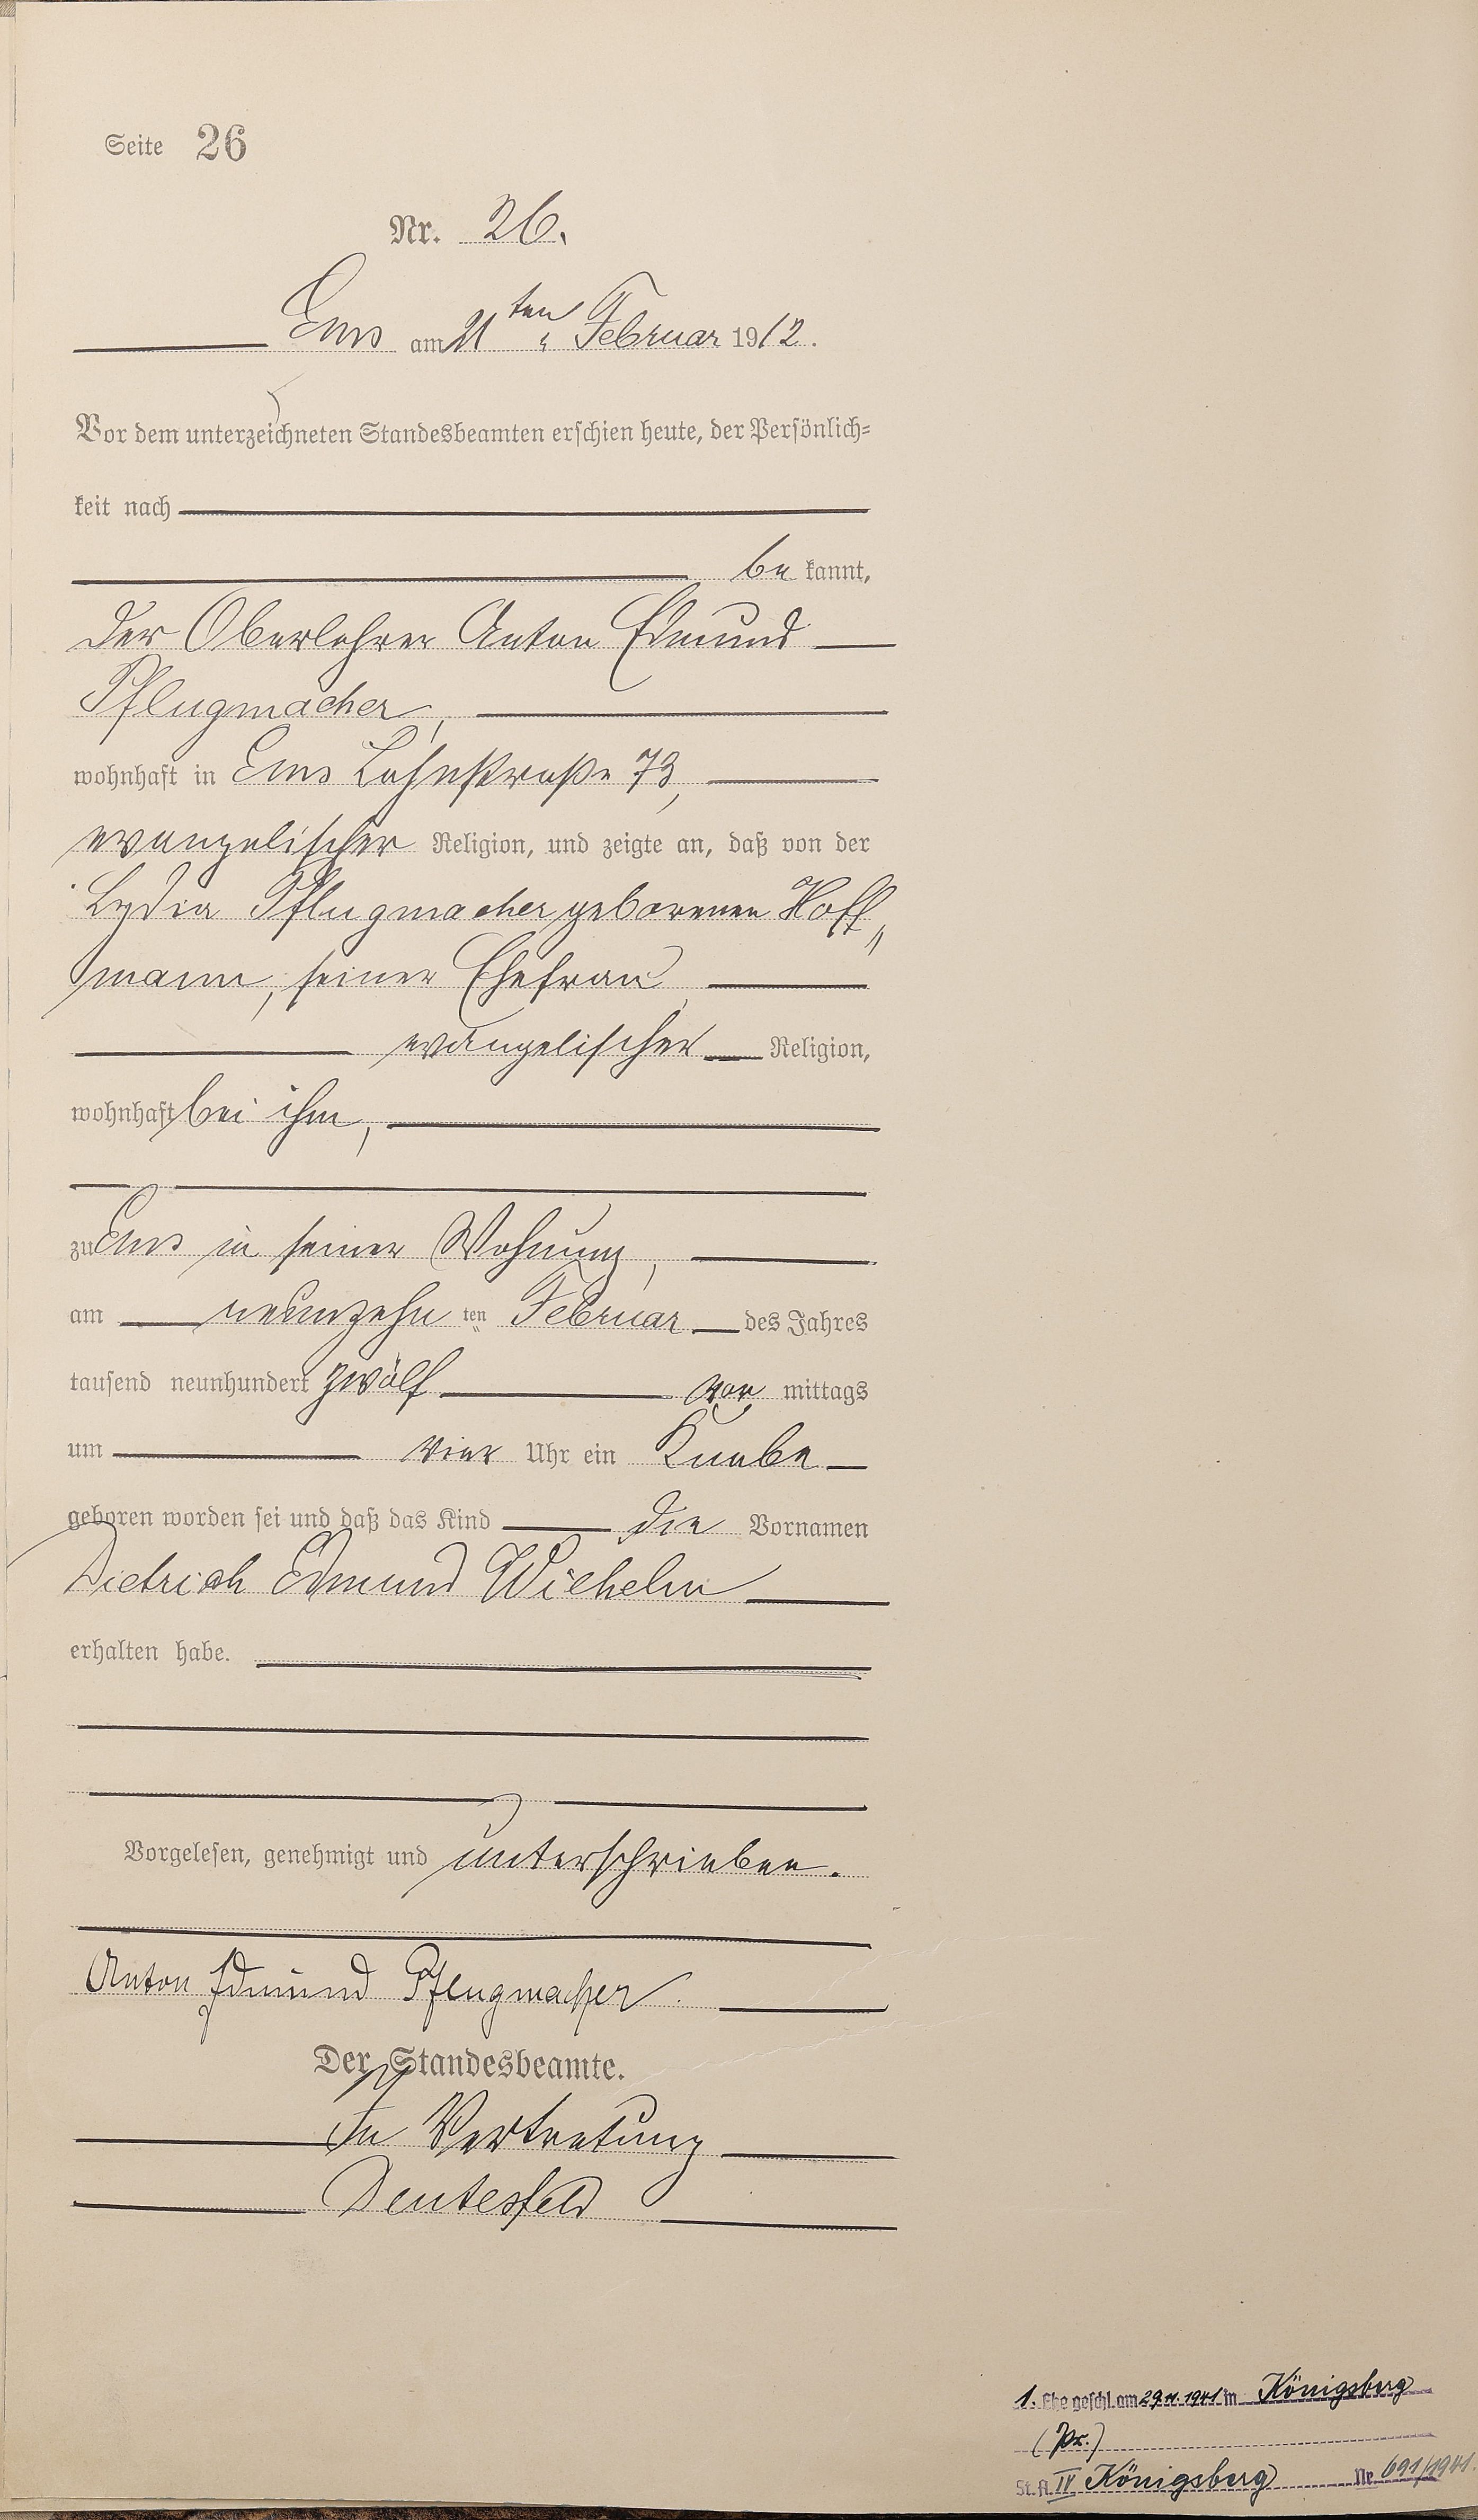 Seite 26
Nr. 26.
Ems am 21ten Februar 1912.
Vor dem unterzeichneten Standesbeamten erschien heute, der Persönlich=
keit nach
be kannt,
der Oberlehrer Anton Edmund
Pflugmacher,
wohnhaft in Ems Lahnstraße 73,
evangelischer Religion, und zeigte an, daß von der
Lydia Pflugmacher geborenen Hoff„
mann, seiner Ehefrau,
evangelischer Religion,
wohnhaft bei ihm,
zu Ems in seiner Wohnung,
am neunzehn ten Februar des Jahres
tausend neunhundert zwölf vor mittags
um vier Uhr ein Knabe
geboren worden sei und daß das Kind die Vornamen
Dietrich Edmund Wilhelm
erhalten habe.
Vorgelesen, genehmigt und unterschrieben.
Anton Edmund Pflugmacher.
Der Standesbeamte.
In Vertretung
Deutesfeld
1. Ehe geschl. am 29.11.1941 in Königsberg
(Pr.)
St.A. IV Königsberg Nr. 691/1941.